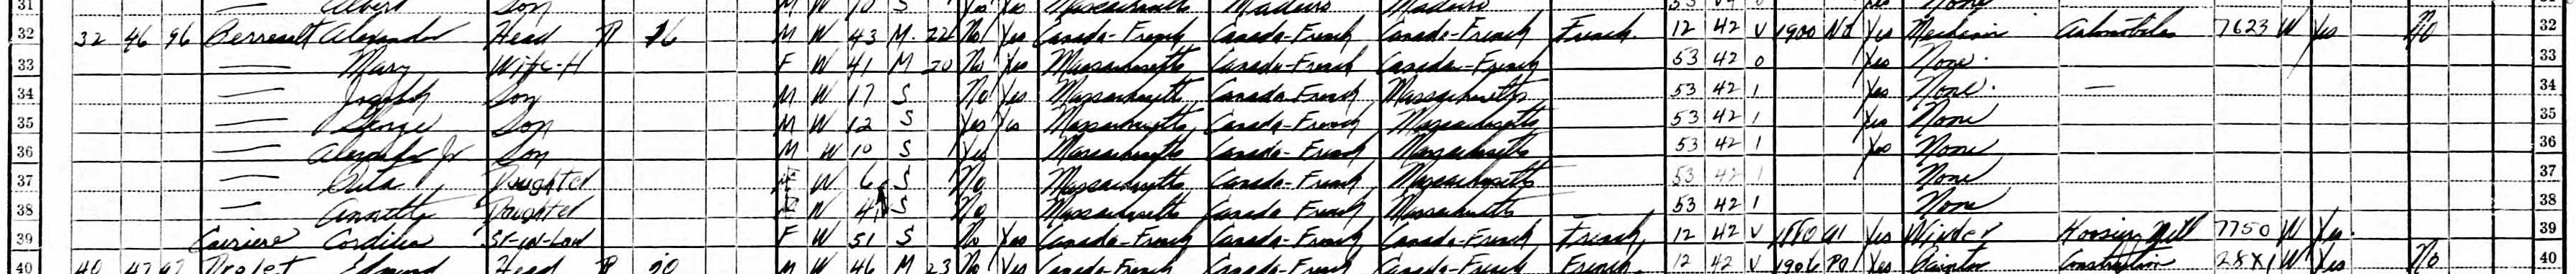 31 — Albert Son M W 10 S Yes Yes Massachusetts Madeira Madeira None
32 32 46 96 Perreault Alexander Head R 16 M W 43 M 22 No Yes Canada-French Canada-French Canada-French French 12 42 V 1900 Na Yes Mechanic Automobiles 7623 W Yes No 32
33 — Mary Wife-H F W 41 M 20 No Yes Massachusetts Canada-French Canada-French 53 42 0 Yes None 33
34 — Joseph Son M W 17 S No Yes Massachusetts Canada-French Massachusetts 53 42 1 Yes None — 34
35 — George Son M W 12 S Yes Yes Massachusetts Canada-French Massachusetts 53 42 1 Yes None 35
36 — Alexander Jr Son M W 10 S Yes Massachusetts Canada-French Massachusetts 53 42 1 Yes None 36
37 — Rita Daughter W 6 S No Massachusetts Canada-French Massachusetts 53 42 1 None 37
38 — Annette Daughter W 4 S No Massachusetts Canada French Massachusetts 53 42 1 None 38
39 Cariere Cordilia Si-in-Law F W 51 S No Yes Canada-French Canada-French Canada-French French 12 42 V 1880 Al Yes Winder Hosiery Mill 7750 W Yes 39
40 40 47 97 Edmund Head R 20 M W 46 M 23 No Yes Canada-French Canada-French Canada-French French 12 42 V 1906 Pa Yes Painter Construction W Yes No 40